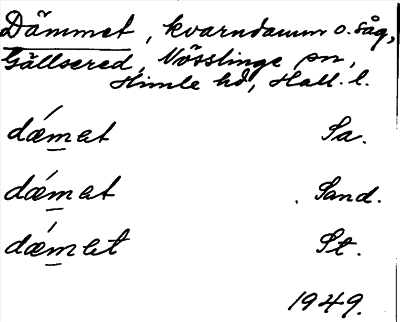 Dämmet, kvarndamm o. såg,
Gällsered, Nösslinge sn,
Himle hd, Hall. l.
dǽmet Sa.
dǽmet Sand.
dǽmet St.
1949.